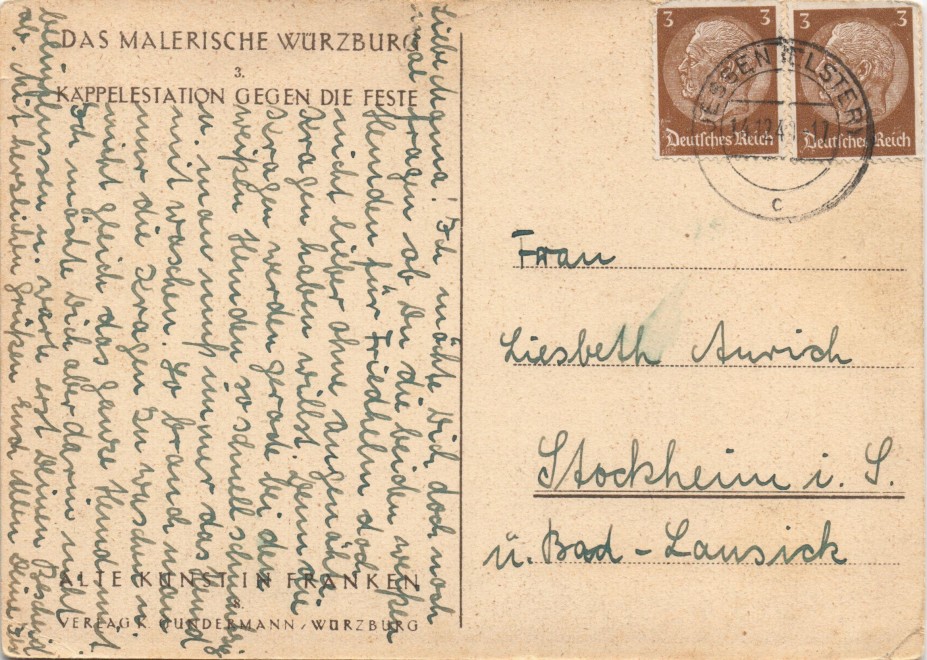 DAS MALERISCHE WÜRZBURG
3.
KÄPPELESTATION GEGEN DIE FESTE
Liebe Mama! Ich möchte Dich doch noch
mal fragen ob Du die beiden weißen
Hemden für Friedhelm doch
nicht lieber ohne angenäht.
Kragen haben willst. Denn die
Kragen werden gerade bei den
weißen Hemden so schnell schmutzig
u. man muß immer das Hemd
mit waschen. So brauch man
nur die Kragen zu waschen u.
nicht gleich das ganze Hemd mit
Ich möchte Dich aber darin nicht
beeinflussen u. warte erst Deinen Bescheid
ab. Mit herzlichen Grüßen Euch allen Deine
ALTE KUNST IN FRANKEN
VERLAG K. GUNDERMANN/WÜRZBURG
3
3
Deutsches Reich
Deutsches Reich
JESSEN (ELSTER)
c
Frau
Liesbeth Aurich
Stockheim i. S.
ü. Bad-Lausick